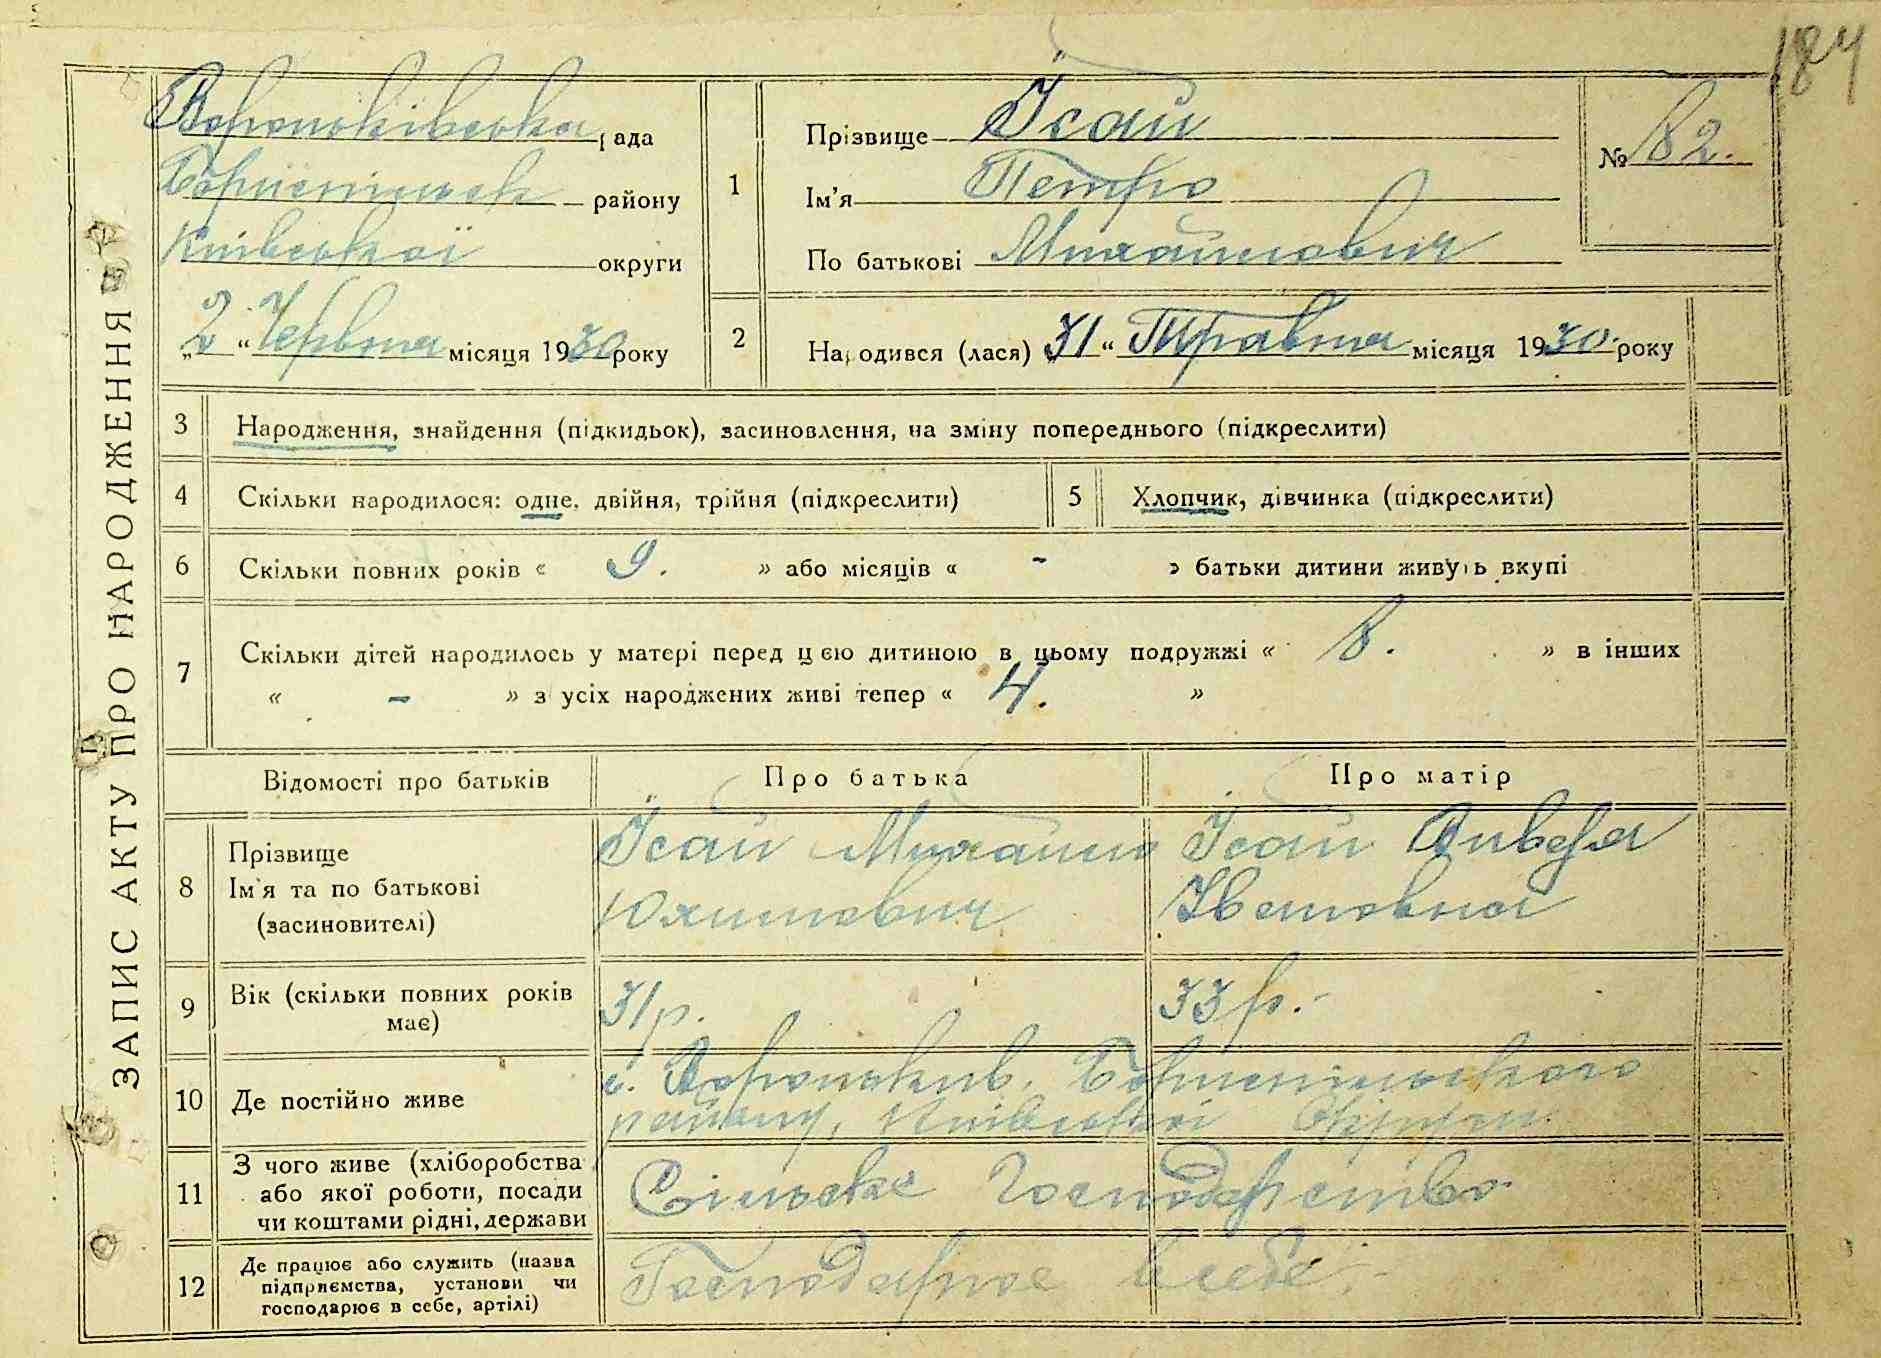 184
ЗАПИС АКТУ ПРО НАРОДЖЕННЯ
Вороньківська рада
Бориспільськ району
Київської округи
„2“ Червня місяця 1930 року
1
Прізвище Ісай
Ім'я Петро
По батькові Михайлович
№ 82.
2
Народився (лася) 31 “ Травня місяця 1930. року
3 Народження, знайдення (підкидьок), засиновлення, на зміну попереднього (підкреслити)
4 Скільки народилося: одне, двійня, трійня (підкреслити)
5 Хлопчик, дівчинка (підкреслити)
6 Скільки повних років « 9. » або місяців « - » батьки дитини живуть вкупі
7 Скільки дітей народилось у матері перед цією дитиною в цьому подружжі « 8. » в інших
« - » з усіх народжених живі тепер « 4. »
Відомості про батьків Про батька Про матір
8 Прізвище
Ім'я та по батькові
(засновителі)
Ісай Михайло
Юхимович
Ісай
Ивановна
9 Вік (скільки повних років
має)
31 р.
33 р.-
10 Де постійно живе
с. Вороньків, Бориспільського
району, Київської Округи.
11 З чого живе (хліборобства
або якої роботи, посади
чи коштами рідні, держави
Сільське Господарство.
12 Де працює або служить (назва
підприємства, установи чи
господарює в себе, артілі)
Господарює в себе.-